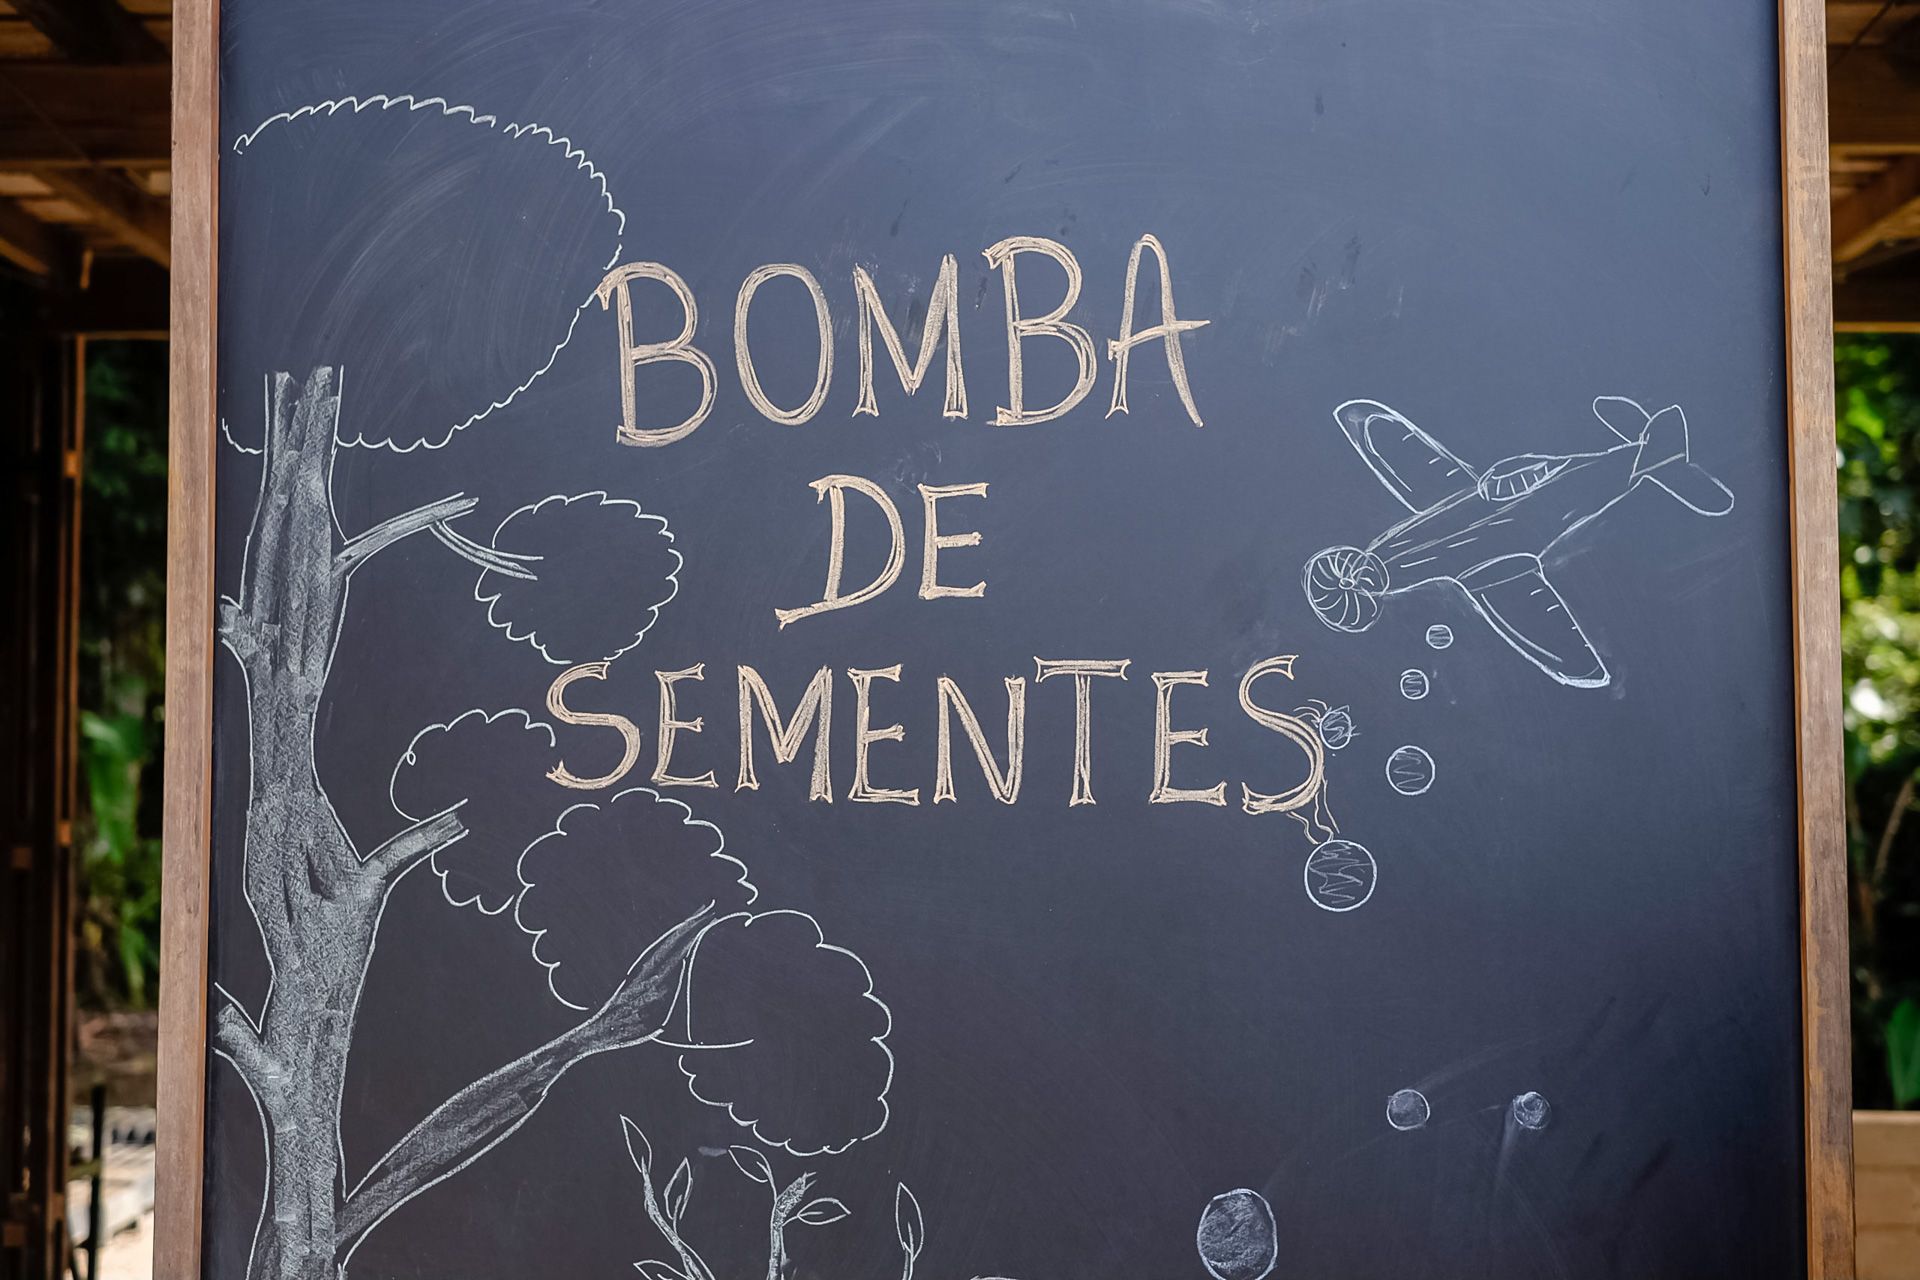 BOMBA
DE
SEMENTES